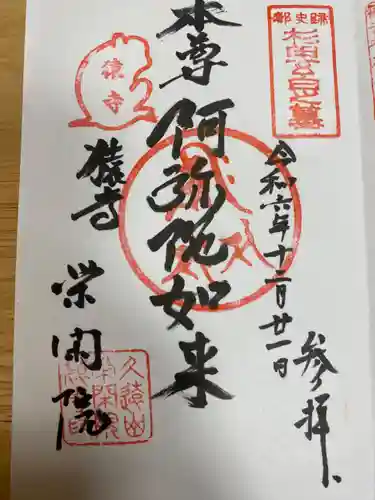 歴史都
杉田玄白墓
参拝
令和六年十二月廿一日
本尊
阿弥陀如来
猿寺
猿寺
栄閑院